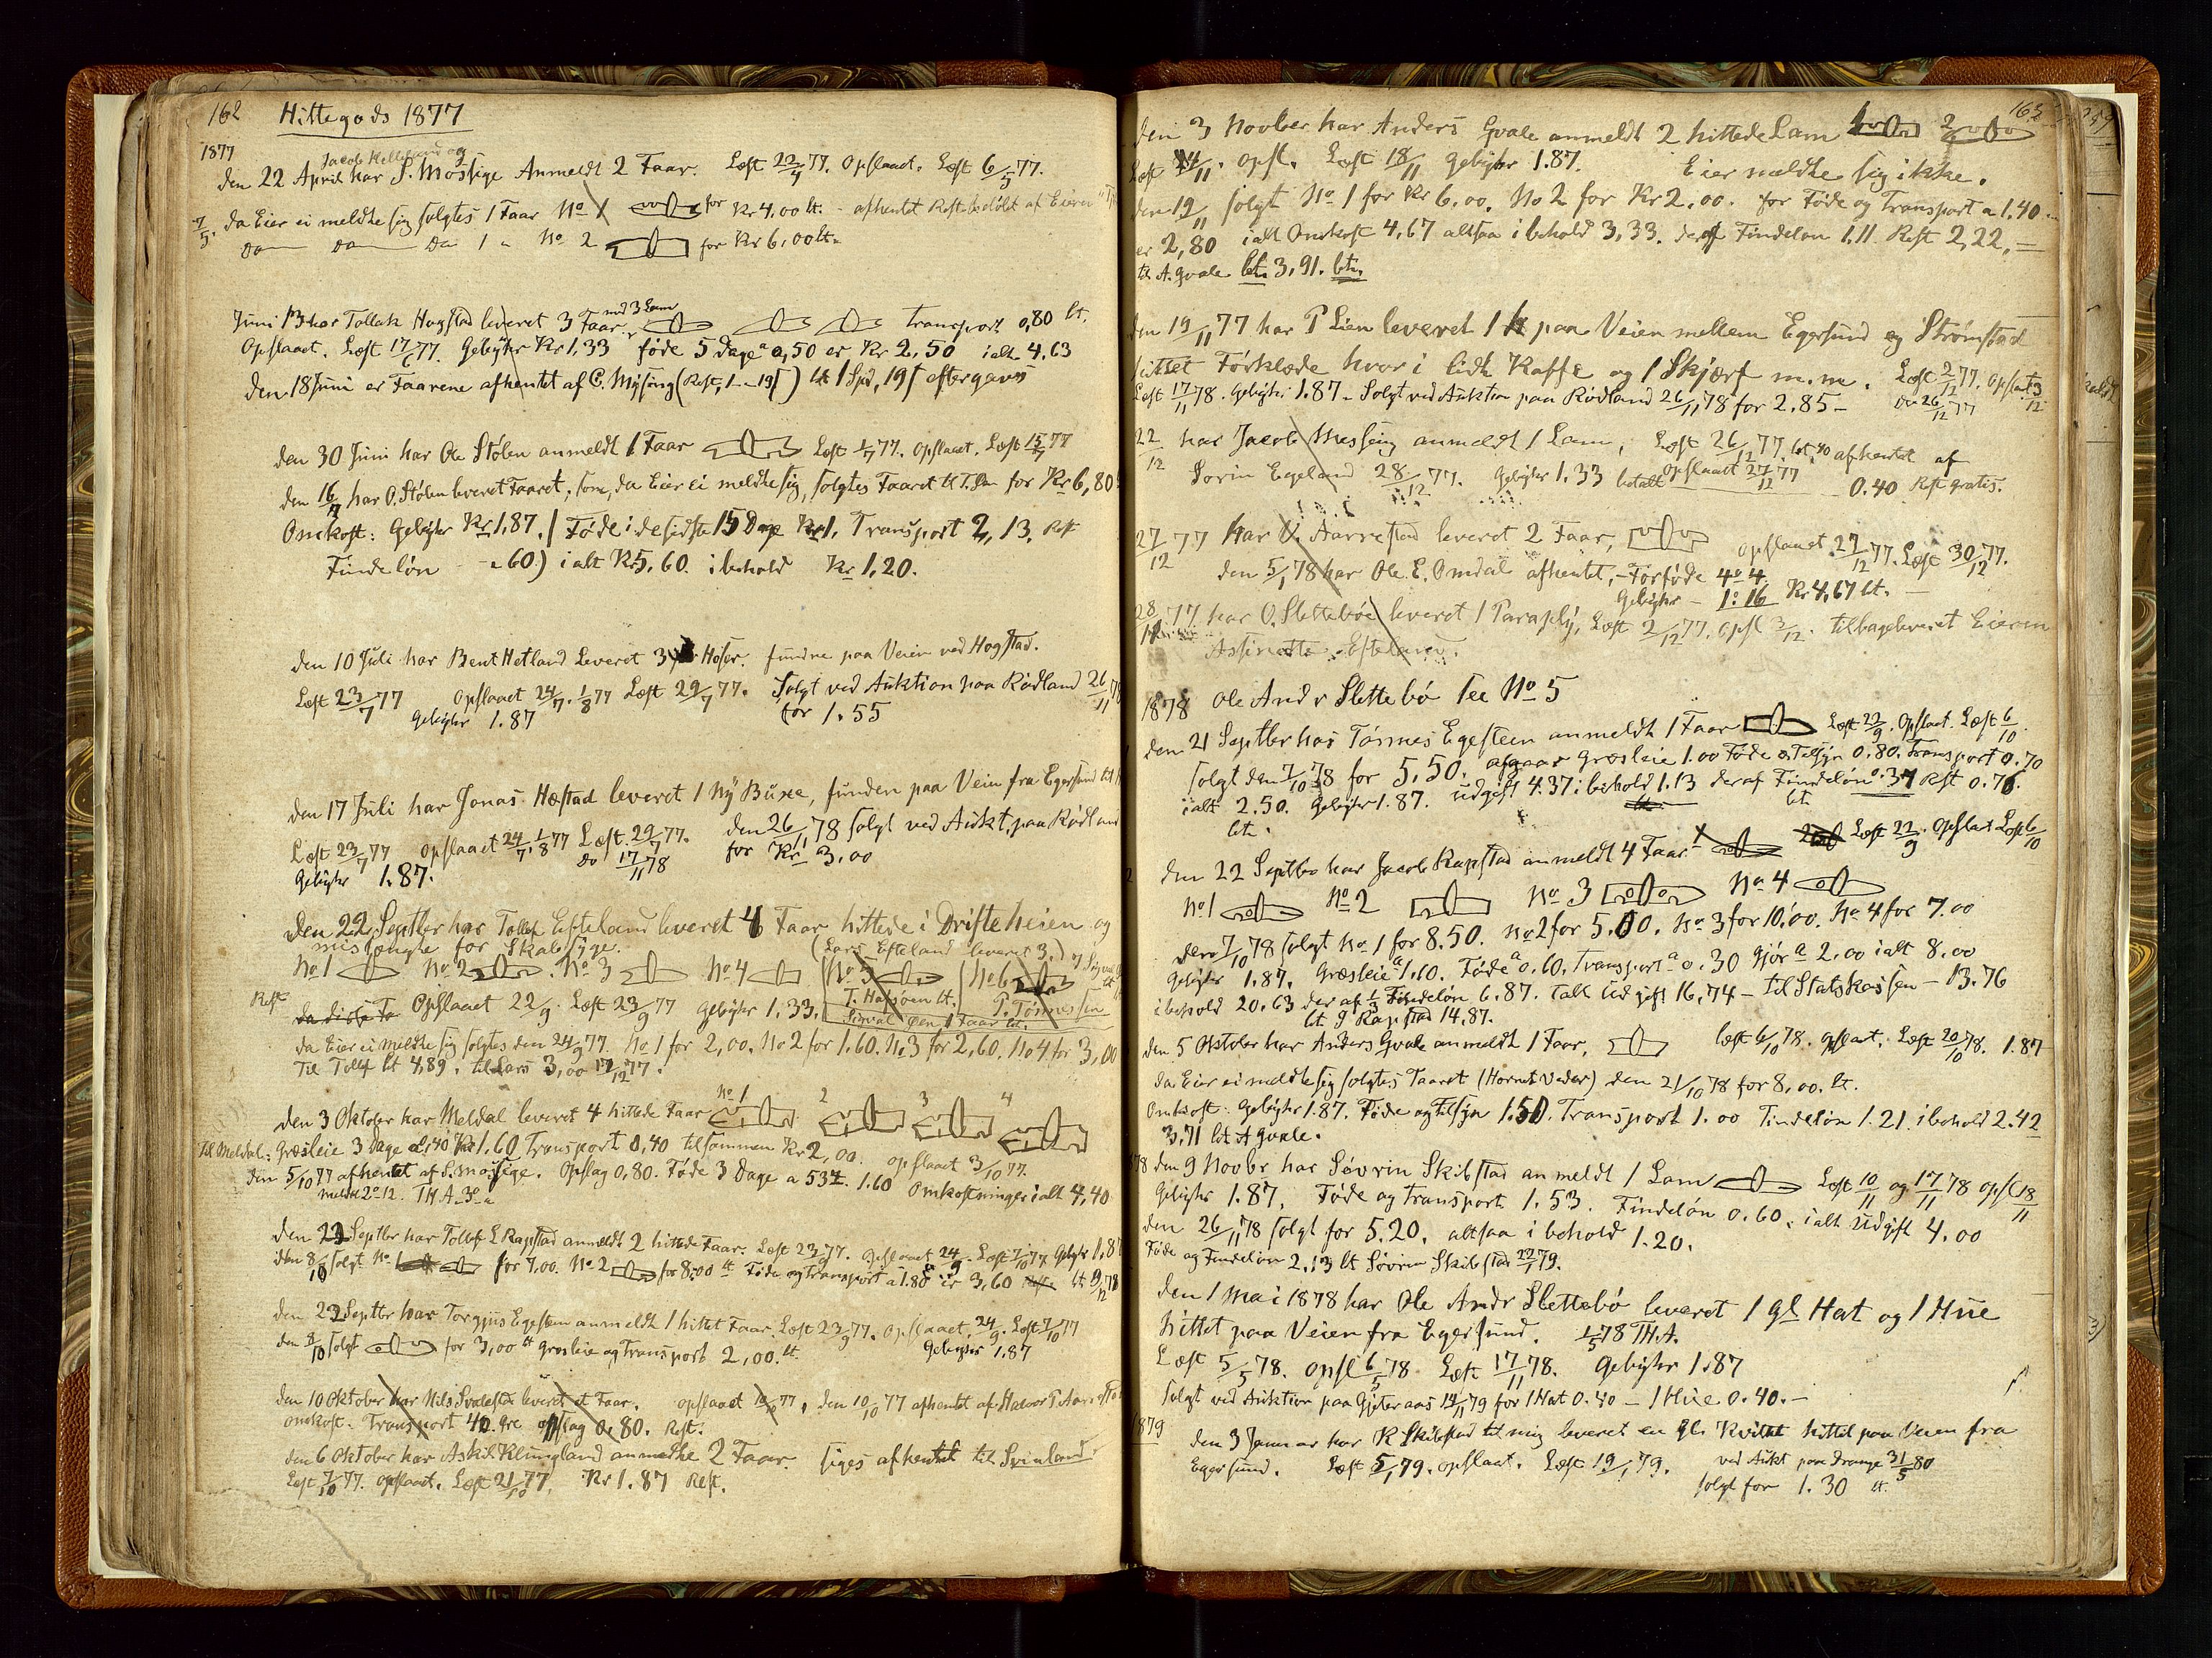 162 Hittegods 1877
1877
Jacob Hellesund og
Den 22 April har S. Mossige Anmeldt 2 Faar. Læst 22/4 77. Opslaaet. Læst 6/5 77.
7/5. Da Eier ei meldte sig solgtes 1 Faar No 1 for Kr 4,00 bt. - afhentet Rest
Do Do Do 1 " No 2 for Kr 6,00 bt.
Juni 13 har Tollak Hogstad leveret 3 Faar med 3 Lam Transport 0,80 bt.
Opslaaet. Læst 17/6 77. Gebyhr Kr 1,33 føde 5 Dage a 0,50 er Kr 2,50 ialt 4,63
Den 18 Juni er Faarene afhentet af C. Mysing (Rest, 1 - 19 ſ) bt 1 Spd, 19 ſ eftergaves
Den 30 Juni har Ole Stølen anmeldt 1 Faar Læst 1/7 77. Opslaaet. Læst 15/7 77
Den 16/7 har O. Stølen leveret Faaret, som, da Eier ei meldte sig, solgtes Faaret til for Kr 6,80
Omkost: Gebyhr Kr 1,87. / Føde i de sidste 15 Dage Kr 1, Transport 2,13. Rest
Findeløn - " 60) i alt Kr 5,60. i behold Kr 1,20.
Den 10 Juli har Bent Hetland Leveret 3 Hoser. fundne paa Veien ved Hogstad.
Læst 23/7 77 Opslaaet 24/7. 1/8 77 Læst 29/7 77. Solgt ved Auktion paa Rødland 26/11 78
Gebyhr 1.87 for 1.55
Den 17 Juli har Jonas Hæstad leveret 1 Ny Buxe, funden paa Veien fra Egersund til
Læst 23/7 77 Opslaaet 24/7, 1/8 77 Læst 29/7 77. Den 26/11 78 solgt ved Aukt. paa Rødland
Gebyhr 1.87. do 17/11 78 for Kr 3.00
Den 22 Septber har Tollef Efteland leveret 4 Faar hittede i Drifteheien og
mistænkte for Skabsyge. (Lars Efteland leveret 3.)
No 1 No 2 No 3 No 4 No 5 No 6
Rest da disse Opslaaet 22/9. Læst 23/9 77 Gebyhr 1.33. T. Hafsøen bt. P. Tønnessen
Sirval den 1 Faar bt.
Da Eier ei meldte sig solgtes den 24/9 77. No 1 for 2,00. No 2 for 1.60. No 3 for 2,60. No 4 for 3,00
Til Tollef bt 4,89. til Lars 3,00 17/12 77.
Den 3 Oktober har Meldal leveret 4 hittede Faar No 1 2 3 4
Til Meldal: Græsleie 3 Dage a 0,40 Kr 1.60 Transport 0,40 tilsammen Kr 2,00. opslaaet 3/10 77.
Den 5/10 77 afhentet af S. Mossige. Opslag 0,80. Føde 3 Dage a 53 1.60 Omkostninger ialt 4,40
Den 23 Septber har Tollef E Rapstad anmeldt 2 hittede Faar. Læst 23/9 77. Opslaaet 24/9. Læst 7/10 77 Gebyhr 1.87
Den 8/10 solgt No 1 for 7,00. No 2 for 8,00 bt Føde og Transport a 1.80 er 3,60
Den 23 Septbr har Torgjus Egesteen anmeldt 1 hittet Faar. Læst 23/9 77. Opslaaet 24/9. Læst 7/10 77
Den 8/10 solgt for 3,00 bt Græsleie og Transport 2,00. bt. Gebyhr 1.87
Den 10 Oktober har Nils Svalestad leveret et Faar. opslaaet 10/10 77, den 10/10 77 afhentet af Halvor T.
Omkost. Transport 40 Øre opslag 0,80. Rest.
Den 6 Oktober har Askil Klungland anmeldte 2 Faar. siges afhentet til Svinland.
Læst 7/10 77. Opslaaet. Læst 21/10 77. Kr 1.87 Rest.
163
Den 3 Novber har Anders Gvale anmeldt 2 hittede Lam 1 2
Læst 4/11. Opsl. Læst 18/11 Gebyhr 1.87. Eier meldte sig ikke.
Den 19/11 solgt No 1 for Kr 6.00. No 2 for Kr 2.00. for Føde og Transport a 1.40
er 2,80 ialt Omkost 4,67 altsaa i behold 3,33. deraf Findeløn 1.11 Rest 2,22.=
til A. Gvale bt. 3,91. bt.
Den 19/11 77 har P Lien leveret 1 paa Veien mellem Egersund og Strømstad
hittet Førklæde hvori lidt Kaffe og 1 Skjærf m.m. Læst 2/12 77. Opslaaet 3/12
Læst 17/11 78. Gebyhr 1.87. Solgt ved Auktion paa Rødland 26/11 78 for 2.85 - do 26/12 77
22/12 har Jacob Mossing anmeldt 1 Lam, Læst 26/12 77. bt. 40 afhentet af
Sørin Egeland 28/12 77. Gebyhr 1.33 betalt Opslaaet 27/12 77 0.40 Rest gratis.
27/12 77 har O. Aarrestad leveret 2 Faar, Opslaaet 27/12 77. Læst 30/12 77.
Den 5/1 78 har Ole E. Omdal afhentet, - For føde 4 o 4.
Gebyhr - 1: 16 Kr 4,67 bt.
28/11 77 har O. Slettebøe leveret 1 Paraply, Læst 2/12 77. Opsl 3/12. tilbageleveret Eieren
Assinatte Efteland.
1878 Ole Andr Slettebø See No 5
Den 21 Septber har Tønnes Egesteen anmeldt 1 Faar Læst 22/9. Opslaat. Læst 6/10
solgt den 7/10 78 for 5,50. afgaar Græsleie 1.00 Føde & Tilsyn 0.80. Transport 0.70
ialt 2.50. Gebyhr 1.87. Udgift 4.37 i behold 1.13 deraf Findeløn 0.37 Rest 0.76.
bt. bt
Den 22 Septber har Jacob Rapstad anmeldt 4 Faar Læst 22/9. Opslaat Læst 6/10
No 1 No 2 No 3 No 4
Den 7/10 78 solgt No 1 for 8.50. No 2 for 5.00. No 3 for 10.00. No 4 for 7.00
Gebyhr 1.87. Græsleie a 1.10. Føde a 0.60. Transport a 0.30 Gjør a 2.00 ialt 8.00
i behold 20.63 deraf 1/3 Findeløn 6.87. Talt Udgift 16,74 - til Statskassen - 13.76
bt. J Rapstad 14.87.
Den 5 Oktober har Anders Gvale anmeldt 1 Faar. Læst 6/10 78. Opslaat. Læst 20/10 78. 1.87
Da Eier ei meldte sig solgtes Faaret (Hornet Veder) den 21/10 78 for 8,00. bt.
Omkost: Gebyhr 1.87. Føde og Tilsyn 1.50. Transport 1.00 Findeløn 1.21. i behold 2.42
3,71 bt. A Gvale.
78 Den 9 Novbr har Søvrin Skibstad anmeldt 1 Lam Læst 10/11 og 17/11 78 opsl 18/11
Gebyhr 1.87. Føde og Transport 1.53. Findeløn 0.60. ialt Udgift 4.00
Den 26/11 78 solgt for 5.20. altsaa i behold 1.20.
Føde og Findeløn 2.13 bt Søvrin Skibstad 22/1 79.
Den 1 Mai 1878 har Ole Andr Slettebø leveret 1 gl Hat og 1 Hue
hittet paa Veien fra Egersund. 1/5 78 TH.A.
Læst 5/5 78. Opsl 6/5 78 Læst 17/11 78. Gebyhr 1.87
Solgt ved Auktion paa Gjeteraas 14/11 79 for 1 Hat 0.40 - 1 Hue 0.40. -
1879 Den 3 Januar har R Skibstad til mig leveret en gl. hittet paa Veien fra
Egersund. Læst 5/1 79. opslaat. Læst 19/1 79. ved Aukt paa Drange 31/5 80
solgt for 1.30 bt.